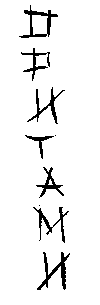 ОРИТАМИ